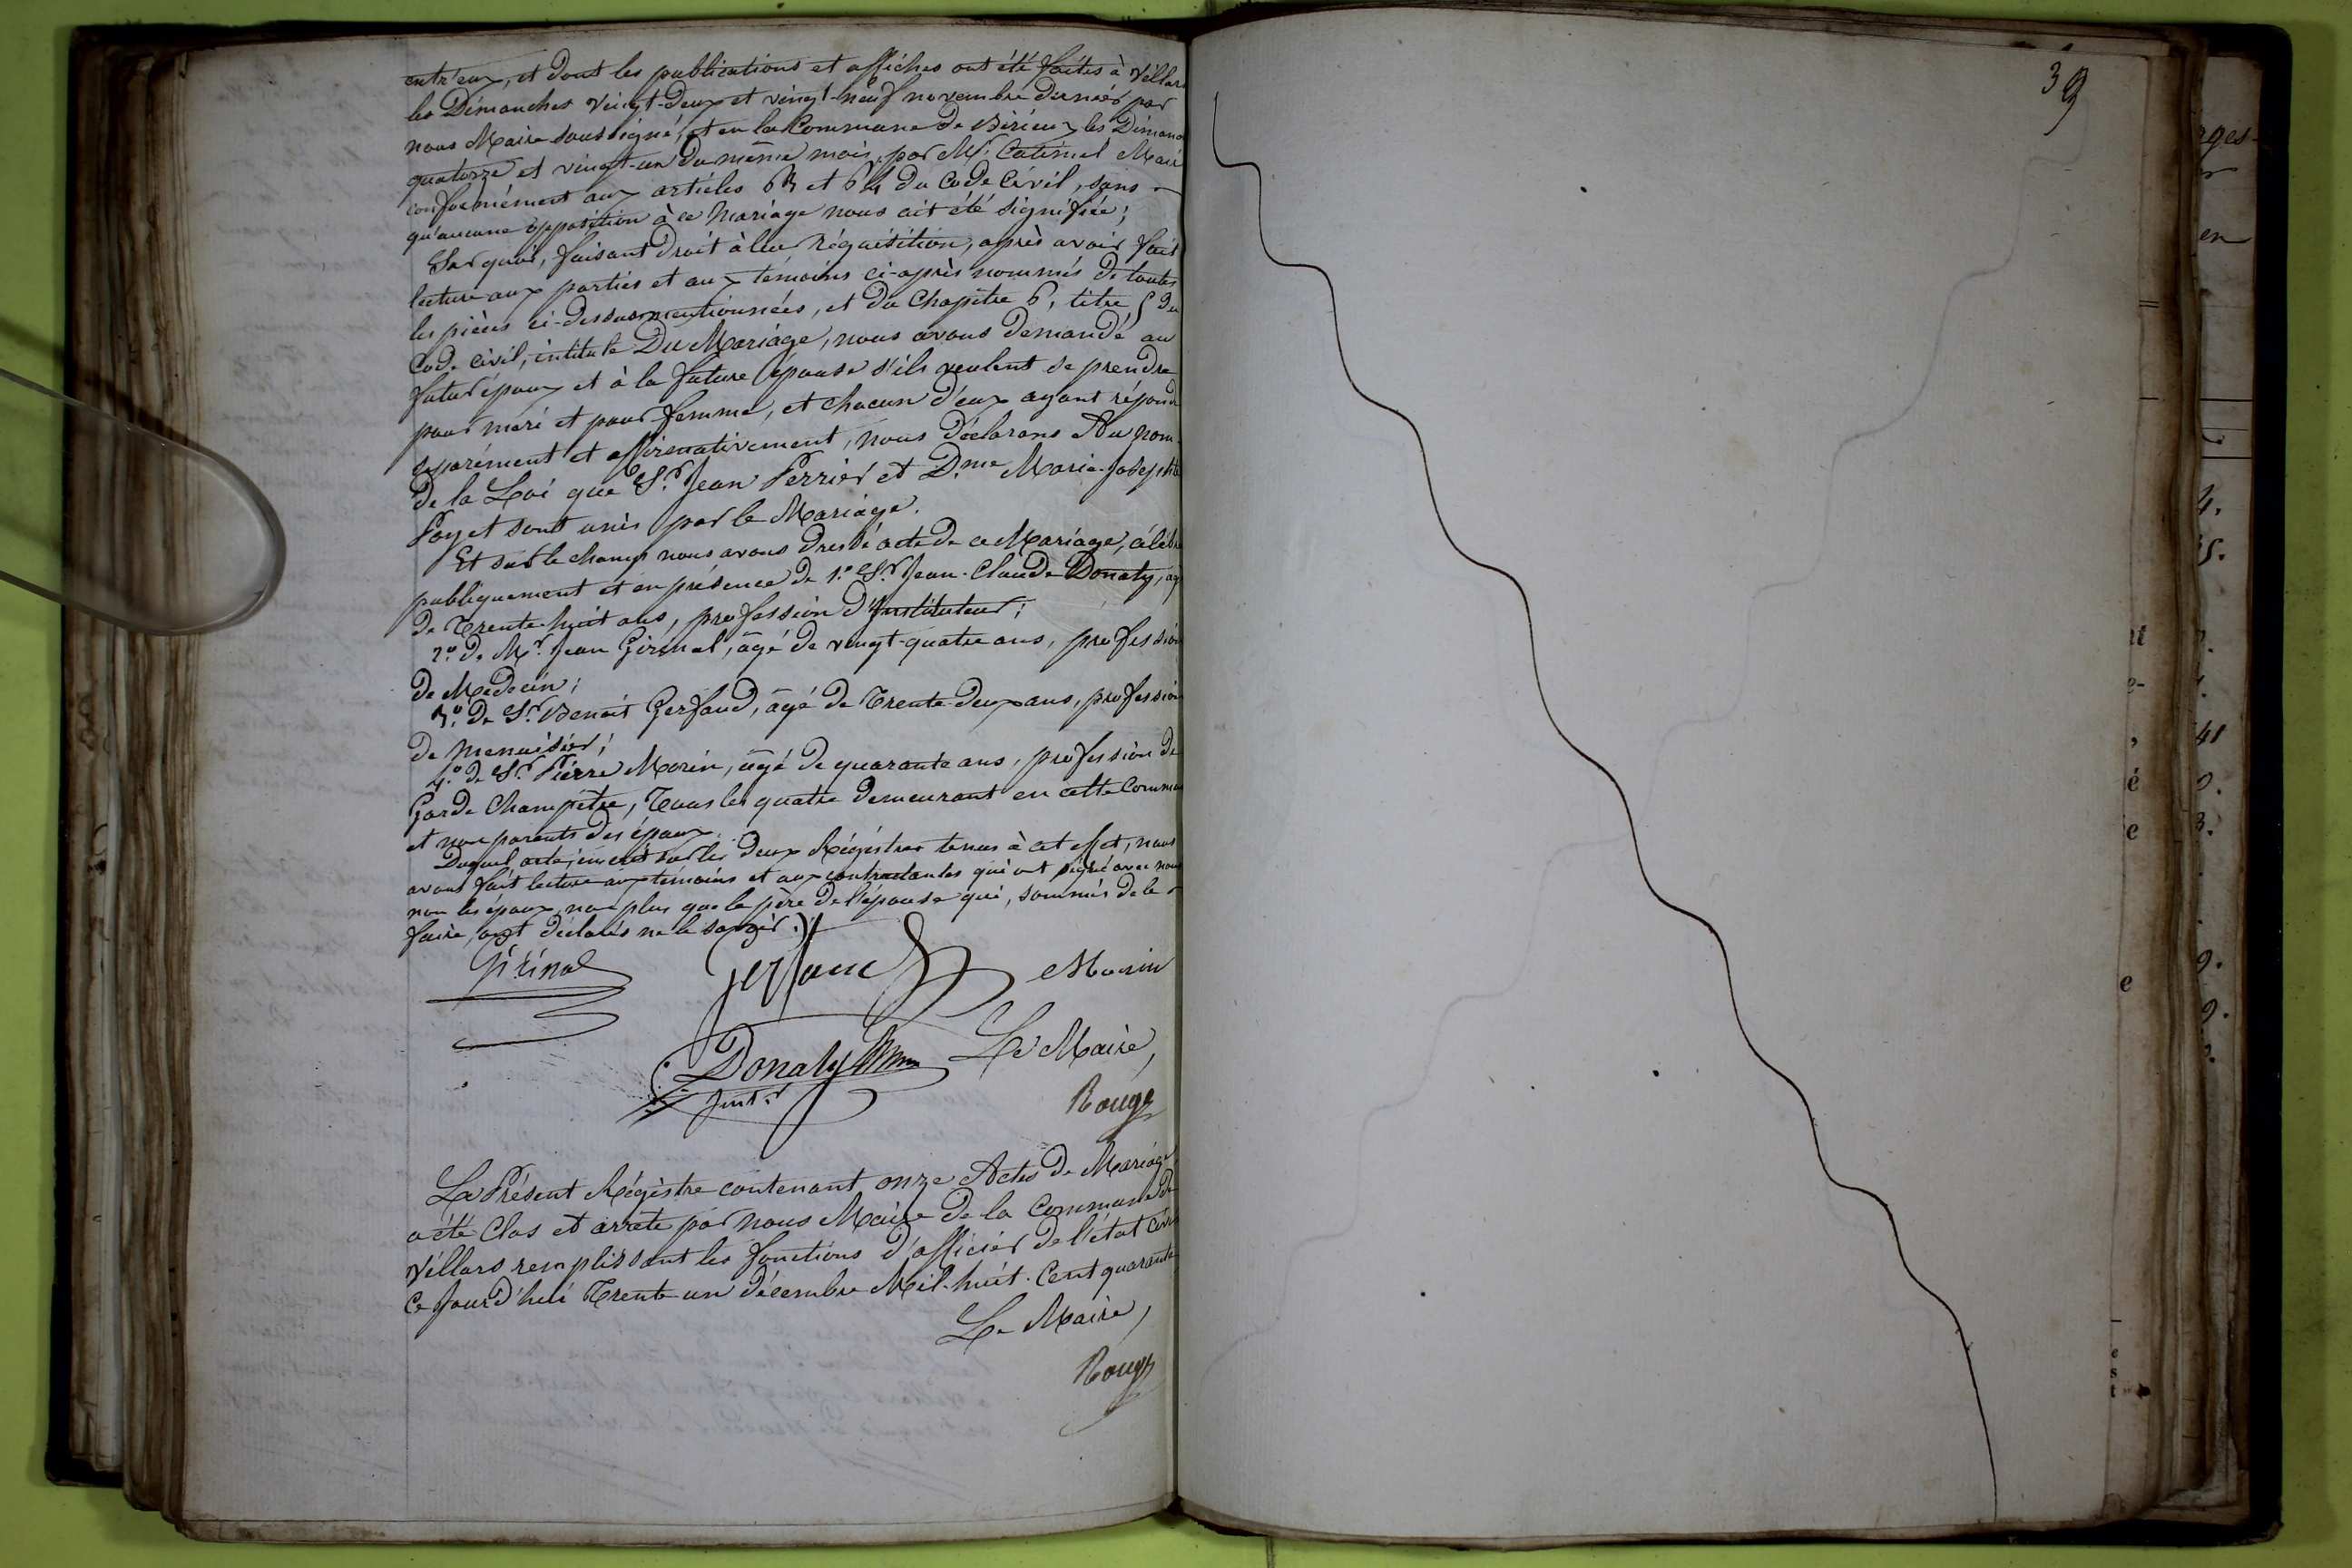 entr'eux, et dont les publications et affiches ont été faites à Villars
les Dimanches vingt-deux et vingt-neuf novembre dernier par
nous Maire soussigné, et en la Commune de Birieux les Dimanc
quatorze et vingt-un du même mois, par Mr. Catimel Mair
conformément aux articles 63 et 64 du Code Civil, sans
qu'aucune opposition à ce Mariage nous ait été signifiée;
Sur quoi, faisant droit à leur réquisition, après avoir fait
lecture aux parties et aux témoins ci-après nommés de toutes
les pièces ci-dessus mentionnées, et du Chapitre 6, titre 5 du
Code Civil, intitulé Du Mariage, nous avons demandé au
futur époux et à la future épouse s'ils veulent se prendre
pour mari et pour femme, et chacun d'eux ayant répondu
séparément et affirmativement, nous déclarons Au nom
de la Loi que Sr. Jean Perrier et Dme Marie-Josephte
Poyet sont unis par le Mariage.
Et sur le champ nous avons dressé acte de ce Mariage, célébré
publiquement et en présence de 1.° Sr. Jean-Claude Donaty, ag
de Trente-huit ans, profession d'Instituteur;
2.° de Mr. Jean Girinal, âgé de vingt-quatre ans, profession
de Médecin;
3.° de Sr. Benoit Gerfaud, âgé de Trente-deux ans, profession
de menuisier;
4.° de Sr. Pierre Morin, âgé de quarante ans, profession de
Garde Champêtre, Tous les quatre demeurant en cette Commun
et non parents des époux.
Duquel acte, inscrit sur les deux Régistres tenus à cet effet, nous
avons fait lecture aux témoins et aux contractantes qui ont signé avec nous
non les époux, non plus que le père de l'épouse qui, sommés de le
faire, ont déclarés ne le savoir.
Girinal Gerfaud Morin
Donaty Le Maire,
Instr. Rouge
Le Présent Régistre contenant onze Actes de Mariage
a été Clos et arrêté par nous Maire de la Commune de
Villars remplissant les fonctions d'officier de l'état Civil
Ce Jourd'hui Trente-un décembre Mil-huit-Cent quarante
Le Maire,
Rouge
39